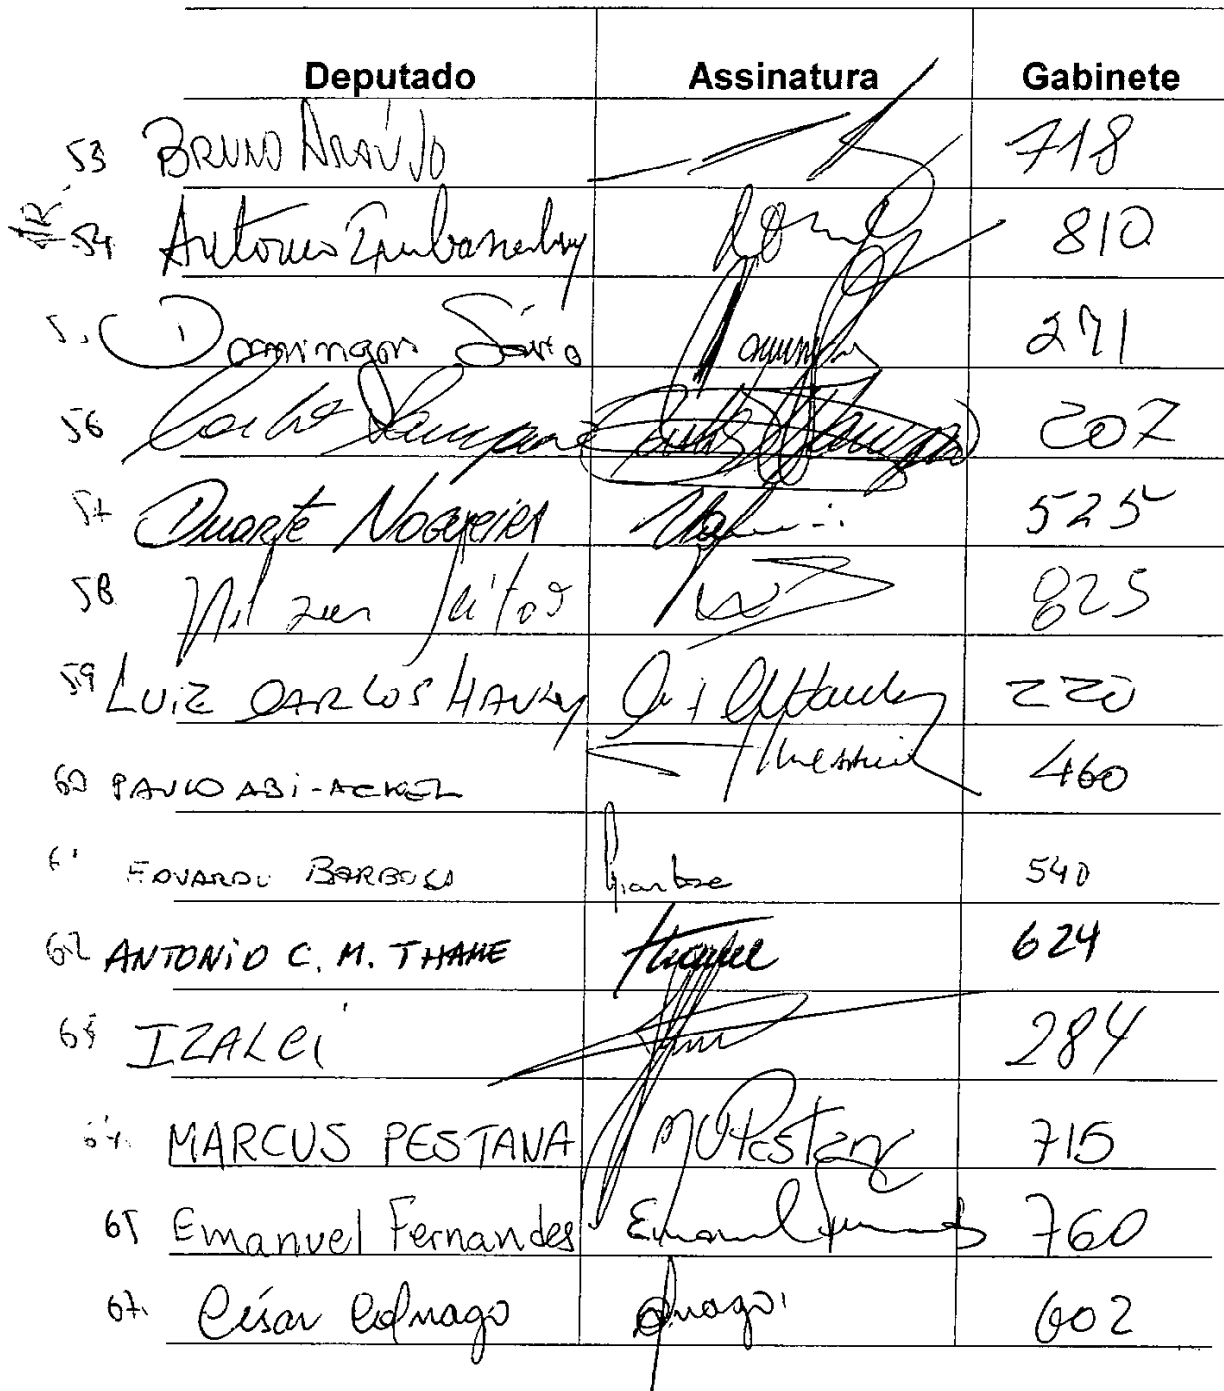 Deputado Assinatura Gabinete
53 BRUNO ARAÚJO 718
54 Antonio Imbassahy 810
Domingos Sávio 271
56 Carlos Sampaio 207
57 DUARTE NOGUEIRA 525
58 Nilson Leitão 825
59 LUIZ CARLOS HAULY 220
60 PAULO ABI-ACKEL 460
61 EDUARDO BARBOSA Barbosa 540
62 ANTONIO C. M. THAME Thame 624
IZALCI 284
64. MARCUS PESTANA MVPestana 715
65 Emanuel Fernandes Emanuel Fernandes 760
67. César Colnago Colnago 602